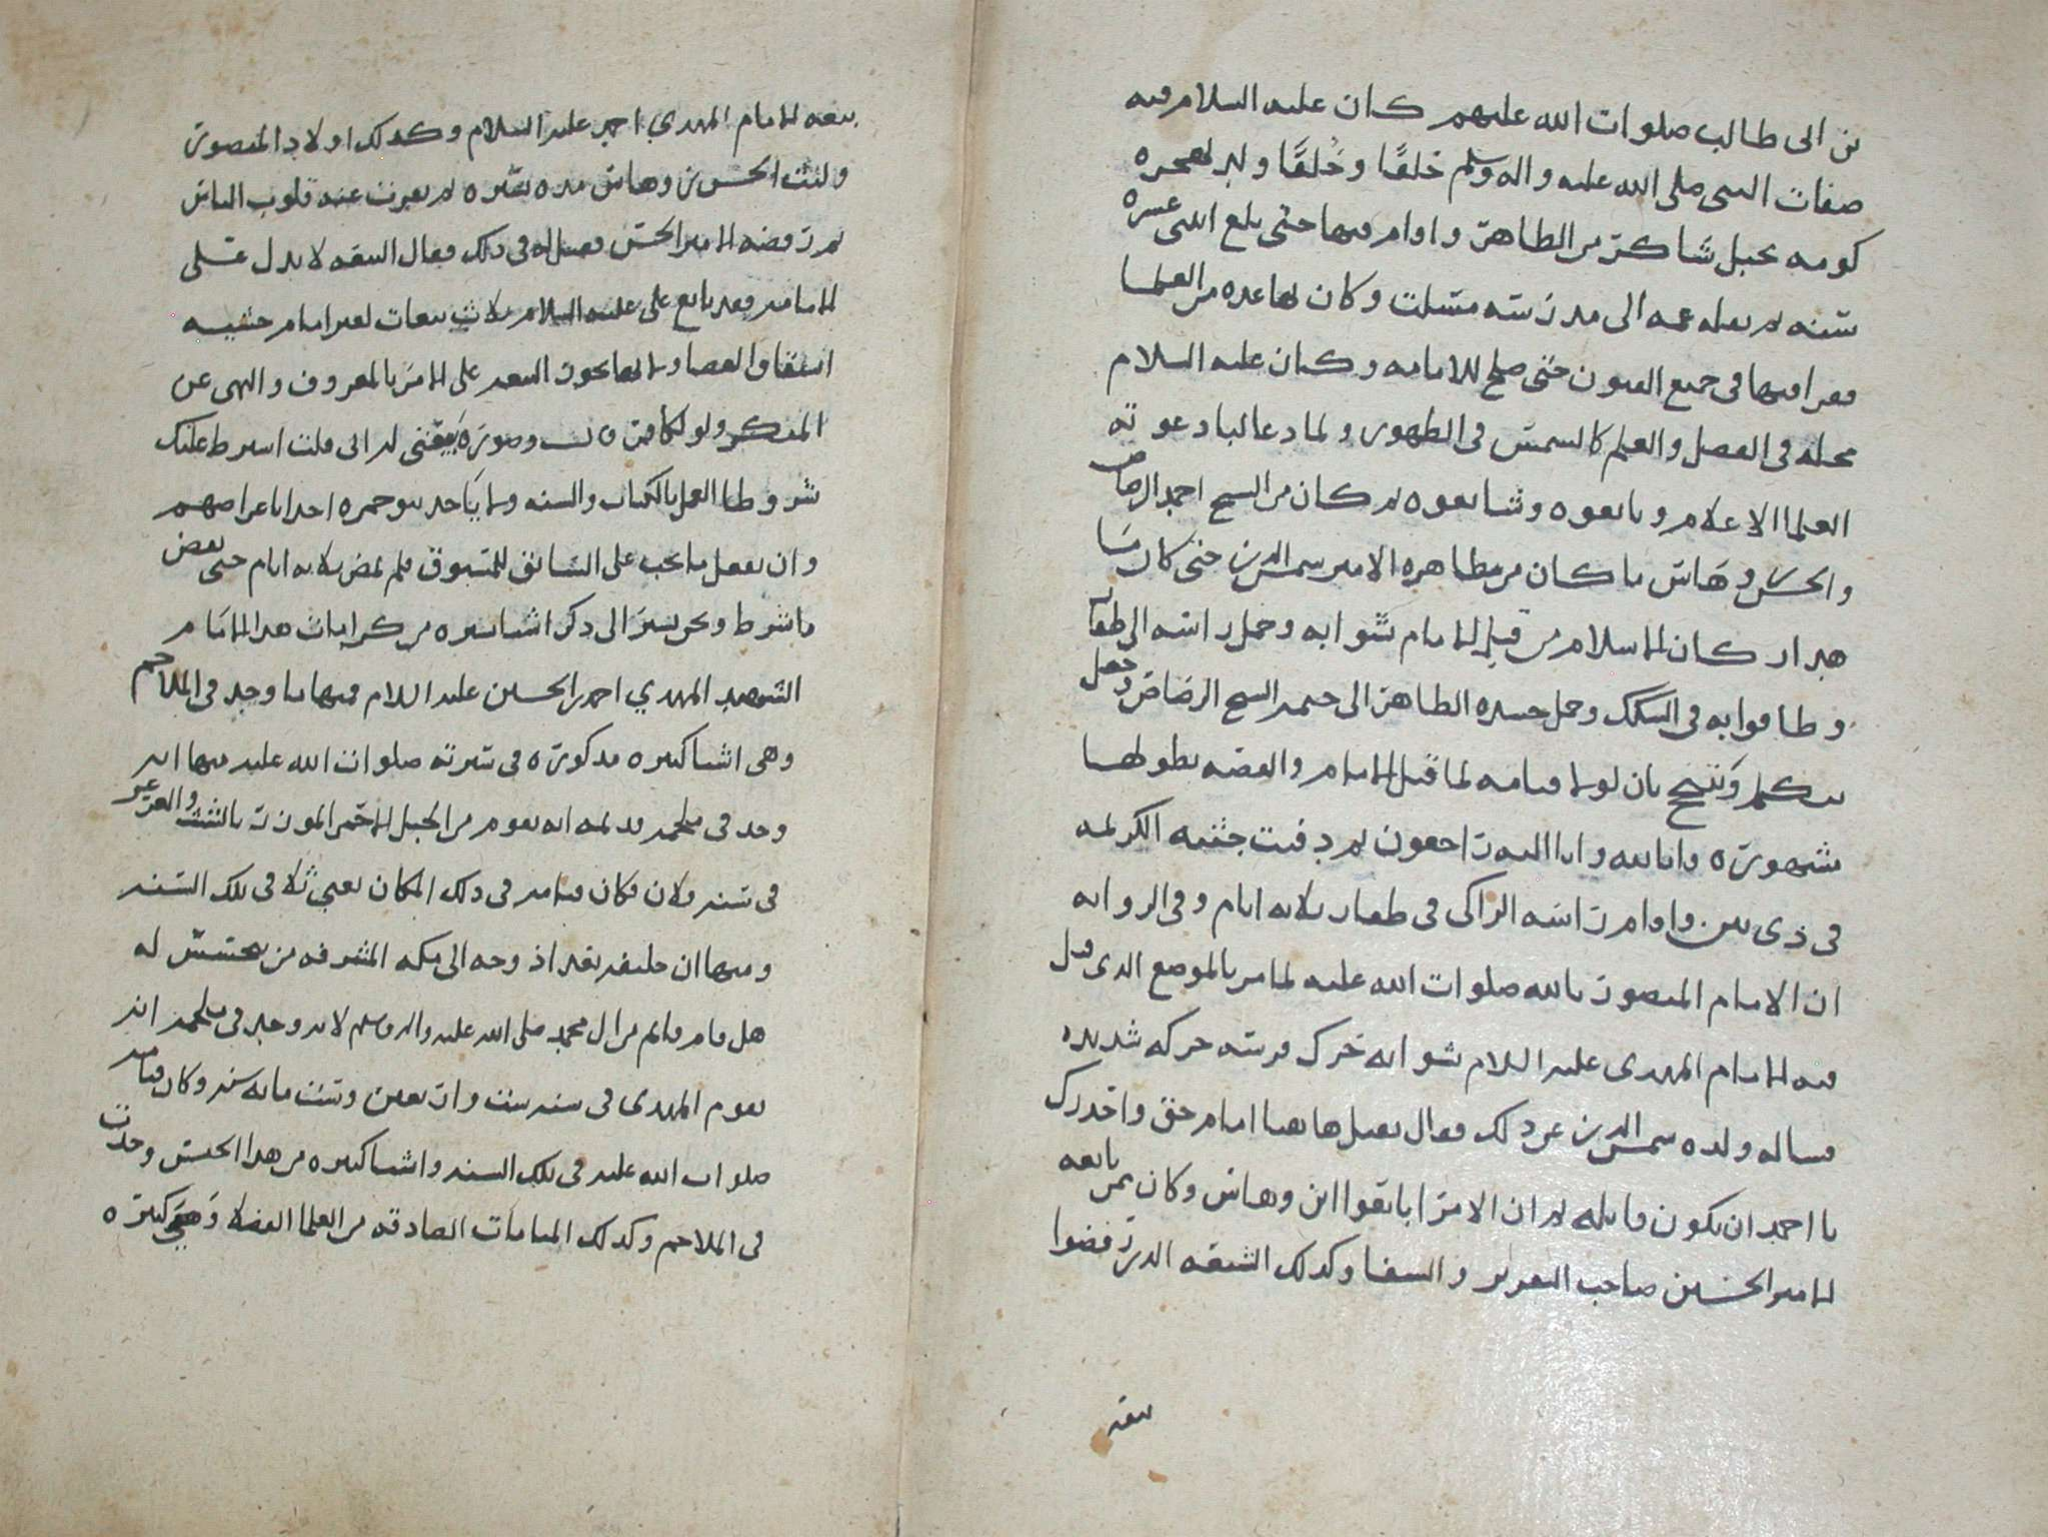 بن ابى طالب صلوات الله عليهم كان عليه السلام فيه
صفات النبى صلى الله عليه واله وسلم خَلقًا وخُلقًا ولد بهجره
كومه بجبل شاكر من الظاهر واقام فيها حتى بلغ اثنى عشره
سنه ثم نقله عمه الى مدرسه مسلت وكان بها عده من العلما
فقرا فيها فى جميع الفنون حتى صلح للامامه وكان عليه السلام
محله فى الفضل والعلم كالشمس فى الظهور ولما دعا لبا دعوته
العلما الاعلام وبايعوه وشايعوه ثم كان من الشيخ احمد الرصاص
والحسن بن وهاس ما كان من مظاهره الامير شمس الدين حتى كان سبا
هد اركان الاسلام من قتل الامام بشوابه وحمل راسه الى ظفار
وطافوا به فى السكك وحمل جسده الطاهر الى خيمه الشيخ الرصاص وجعل
يتكلم بان لولا قيامه لما قتل الامام والقصه بطولها
مشهوره وانا لله وانا اليه راجعون ثم دفنت جثته الكريمه
فى ذى بين واقام راسه الزاكى فى ظفار ثلاثه ايام وفى الروايه
ان الامام المنصور بالله صلوات الله عليه لما مر بالموضع الذى قتل
فيه الامام المهدى عليه السلام بشوابه تحرك فرسه حركه شديده
فساله ولده شمس الدين عن ذلك فقال يقتل هاهنا امام حق واحذرك
يا احمد ان تكون قاتله ثم ان الامرا بايعوا ابن وهاس وكان ممن بايعه
الامير الحسين صاحب التقرير والشفا وكذلك الشيعه الذين رفضوا
بيعه
بيعه الامام المهدي احمد عليه السلام وكذلك اولاد المنصور
ولبث الحسن بن وهاس مده يسيره ثم تغيرت عنه قلوب الناس
ثم رفضه الامير الحسين فقيل له فى ذلك فقال البيعه لا تدل على
الامامه وقد بايع على عليه السلام ثلاث بيعات لغير امام خشيه
انشقاق العصا وانما يجوز البيعه على الامر بالمعروف والنهى عن
المنكر ولو لكافر وصوره بيعتى له انى قلت اشرط عليك
شروطا العمل بالكتاب والسنه ولا ياخذ بنو حمزه احدا باعراضهم
وان يفعل ما يجب على السابق للمسبوق فلم تمض ثلاثه ايام حتى نقض
ما شرط ونحن نشير الى ذكر اشيا يسيره من كرامات هذا الامام
الشهيد المهدي احمد بن الحسين عليه السلام فمنها ما وجد فى الملاحم
وهى اشيا كثيره مذكوره فى سيرته صلوات الله عليه منها انه
وجد فى ملحمه قديمه انه يقوم من الجبل الاحمر الموزر بالشث والعرعر
فى سنه فلان فكان قيامه فى ذلك المكان يعنى ثلا فى تلك السنه
ومنها ان خليفه بغداذ وجه الى مكه المشرفه من يتجسس له
هل قام قائم من ال محمد صلى الله عليه واله وسلم لانه وجد فى ملحمه انه
يقوم المهدى فى سنه ست واربعين وست مائه سنه وكان قيامه
صلوات الله عليه فى تلك السنه واشيا كثيره من هذا الجنس وجدت
فى الملاحم وكذلك المنامات الصادقه من العلما الفضلا وهى كثيره